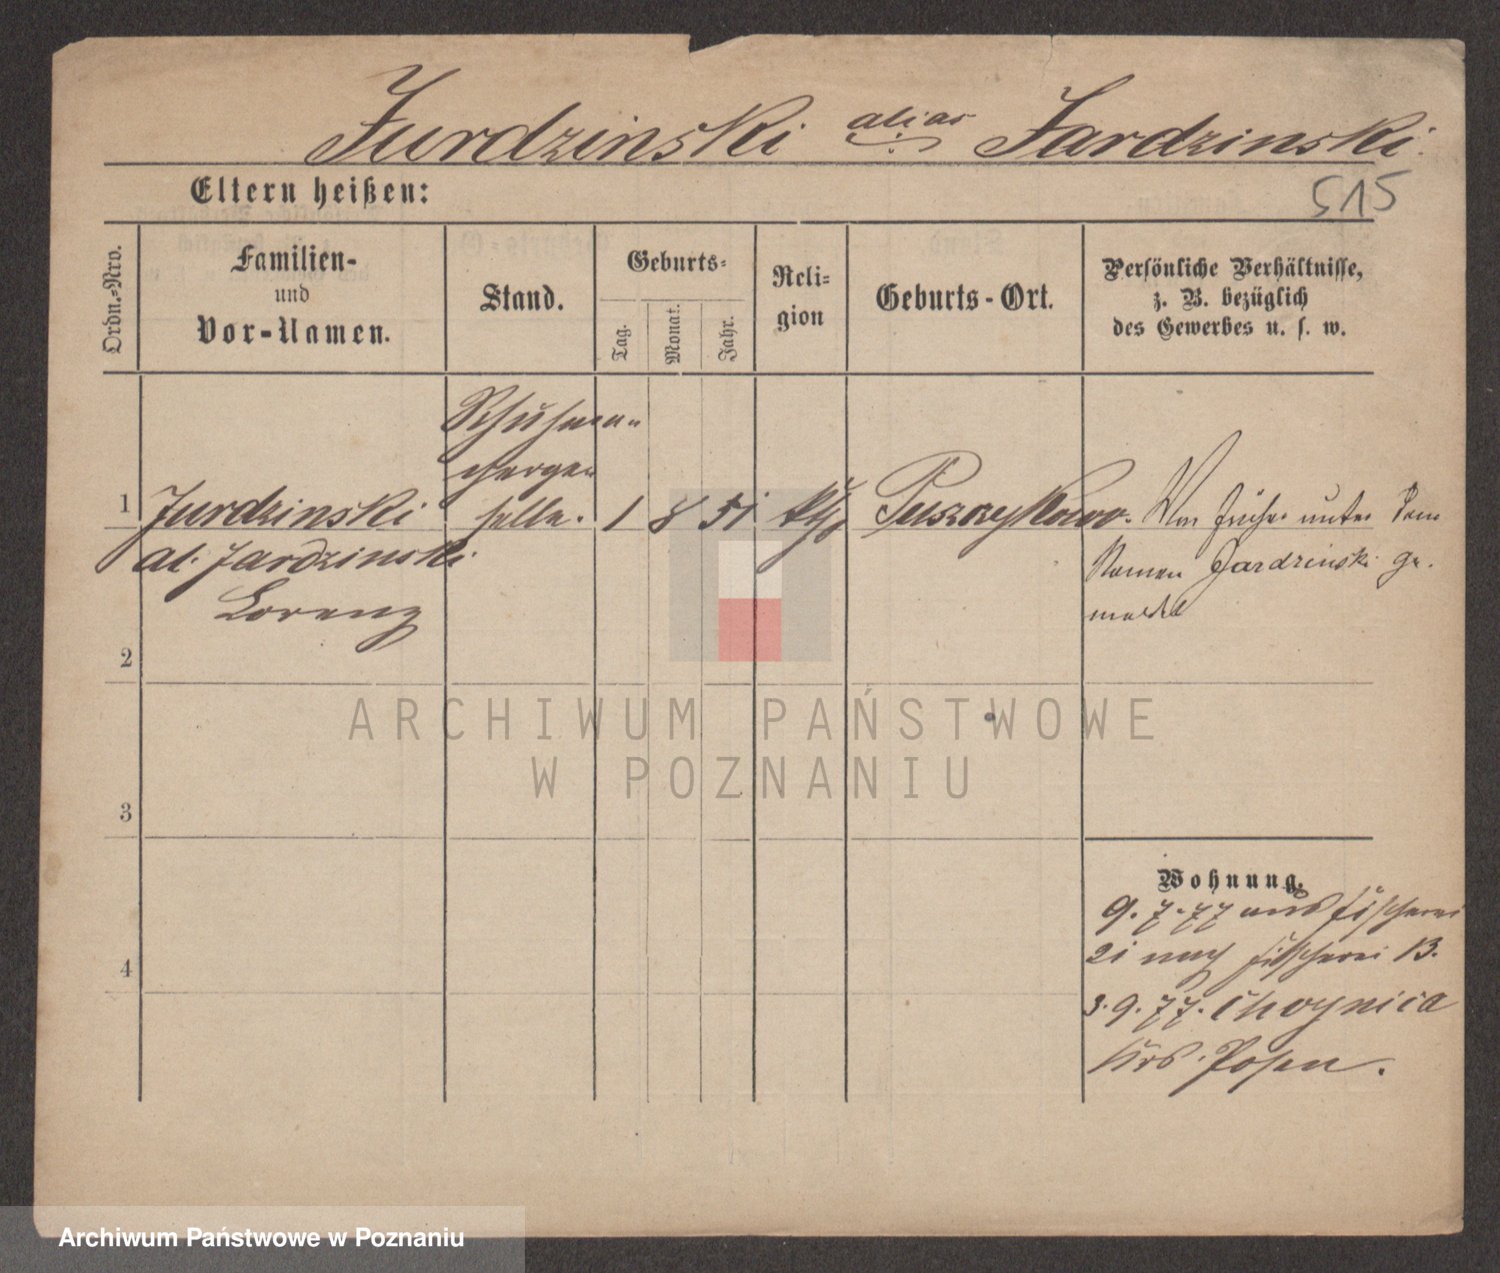 Jurdzinski alias Jardzinski.
Eltern heißen:
515
Ordn.-Nro.
Familien-
und
Vor-Namen.
Stand.
Geburts-
Tag.
Monat.
Jahr.
Reli-
gion
Geburts-Ort.
Persönliche Verhältnisse,
z. B. bezüglich
des Gewerbes u. s. w.
1
Jurdzinski
al. Jardzinski
Lorenz
Schuhma-
cherge-
selle.
1
8
51
kth
Puszczykowo.
War früher unter dem
Namen Jardzinski ge-
meldet
2
3
4
Wohnung.
9.7.77 aus Fischerei
21 nach Fischerei 13.
3.9.77. Choynica
Krs. Posen.
ARCHIWUM PAŃSTWOWE
W POZNANIU
Archiwum Państwowe w Poznaniu